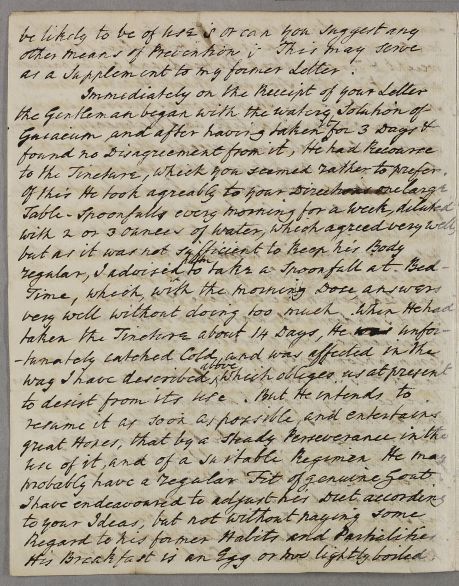 be likely to be of use; or can you suggest any
other means of Prevention; This may serve
as a Supplement to my former Letter.
Immediately on the Receipt of your Letter
the Gentleman began with the watery Solution of
Guiacum, and after having taken for 3 Days &
found no Disagreement from it, He had Recourse
to the Tincture, which you seemed rather to prefer.
Of this He took agreably to your Directions large
Table-Spoonfulls every morning for a week, diluted
with 2 or 3 ounces of water, which agreed very well,
but as it was not sufficient to keep his Body
regular, I advised to take a Spoonfull at Bed-
Time, which, with the morning Dose answers
very well without doing too much. When He had
taken the Tincture about 14 Days, He unfor-
-tunately catched Cold, and was affected in the
way I have described above, which obliges us at present
to desist from its use. But He intends to
resume it as soon as possible, and entertains
great Hopes, that by a steady Perseverance in the
use of it, and of a suitable Regimen He may
probably have a regular Fit of genuine Gout.
I have endeavoured to adjust his Diet according
to your Ideas, but not without paying some
Regard to his former Habits and Partialities
His Breakfast is an Egg or two lightly boiled